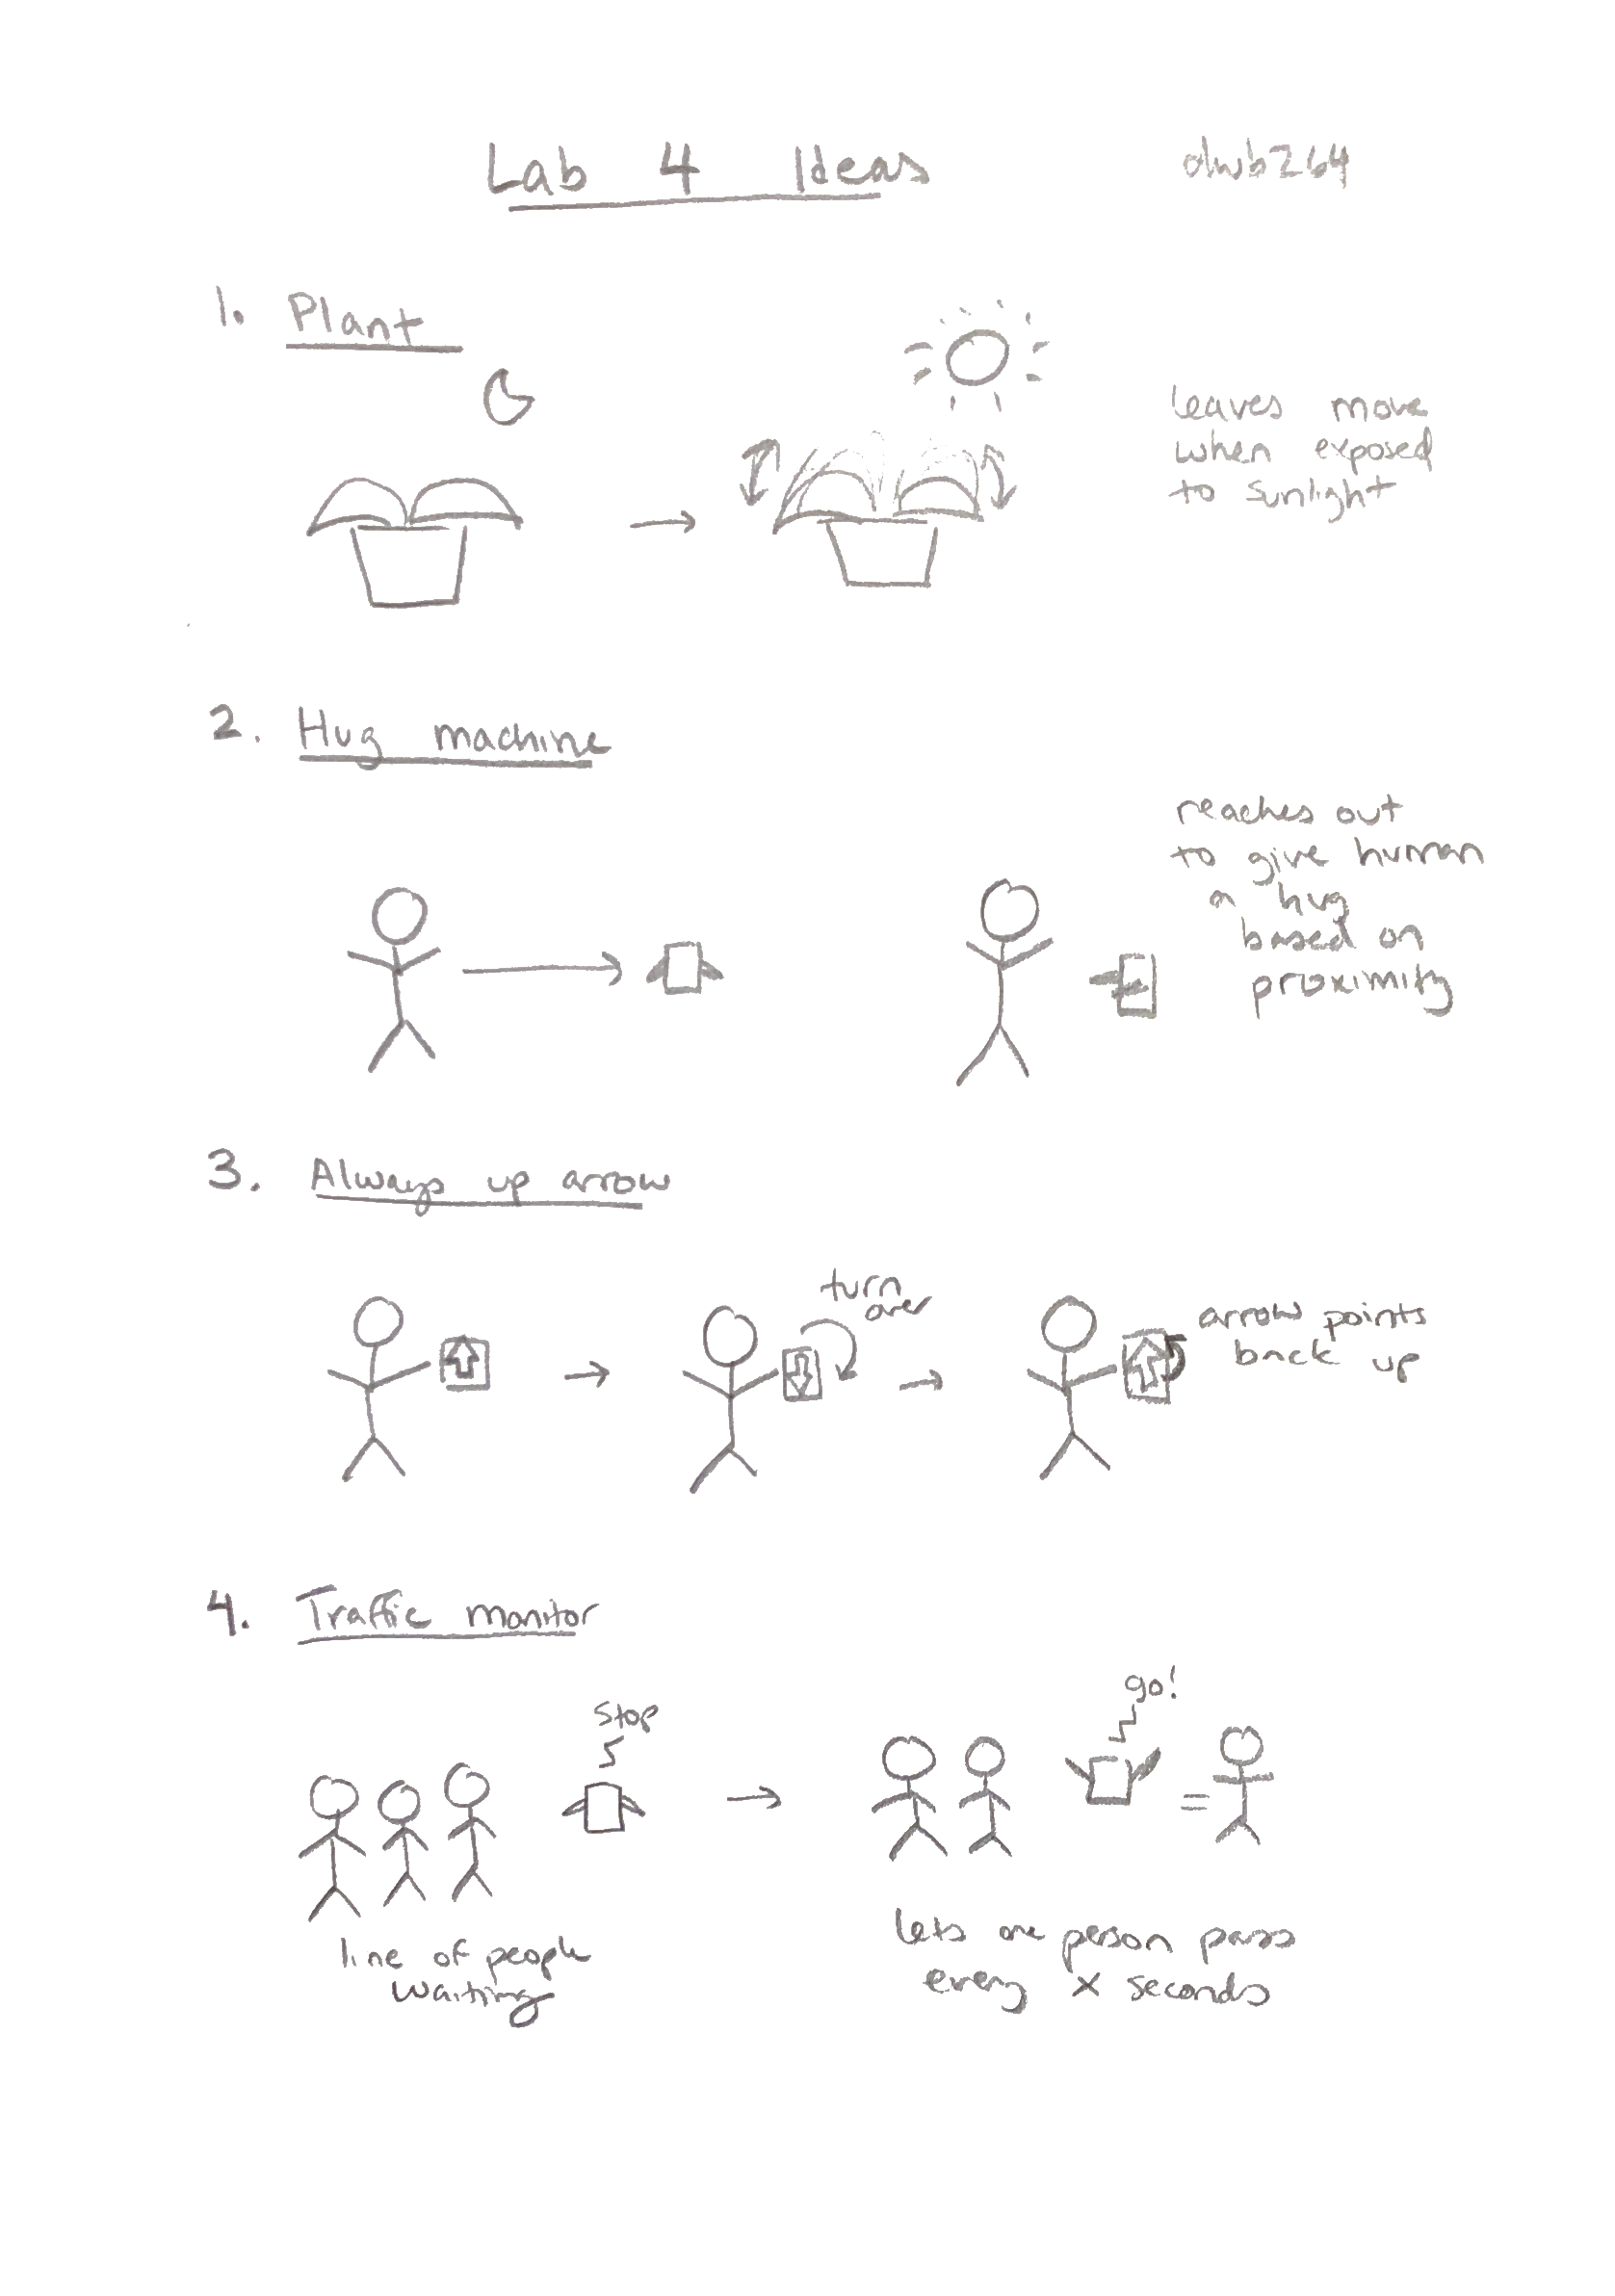 Lab 4 Ideas
dwb264
1. Plant
leaves move
when exposed
to sunlight
2. Hug machine
reaches out
to give human
a hug
based on
proximity
3. Always up arrow
turn
over
arrow points
back up
4. Traffic monitor
stop
go!
line of people
waiting
lets one person pass
every x seconds